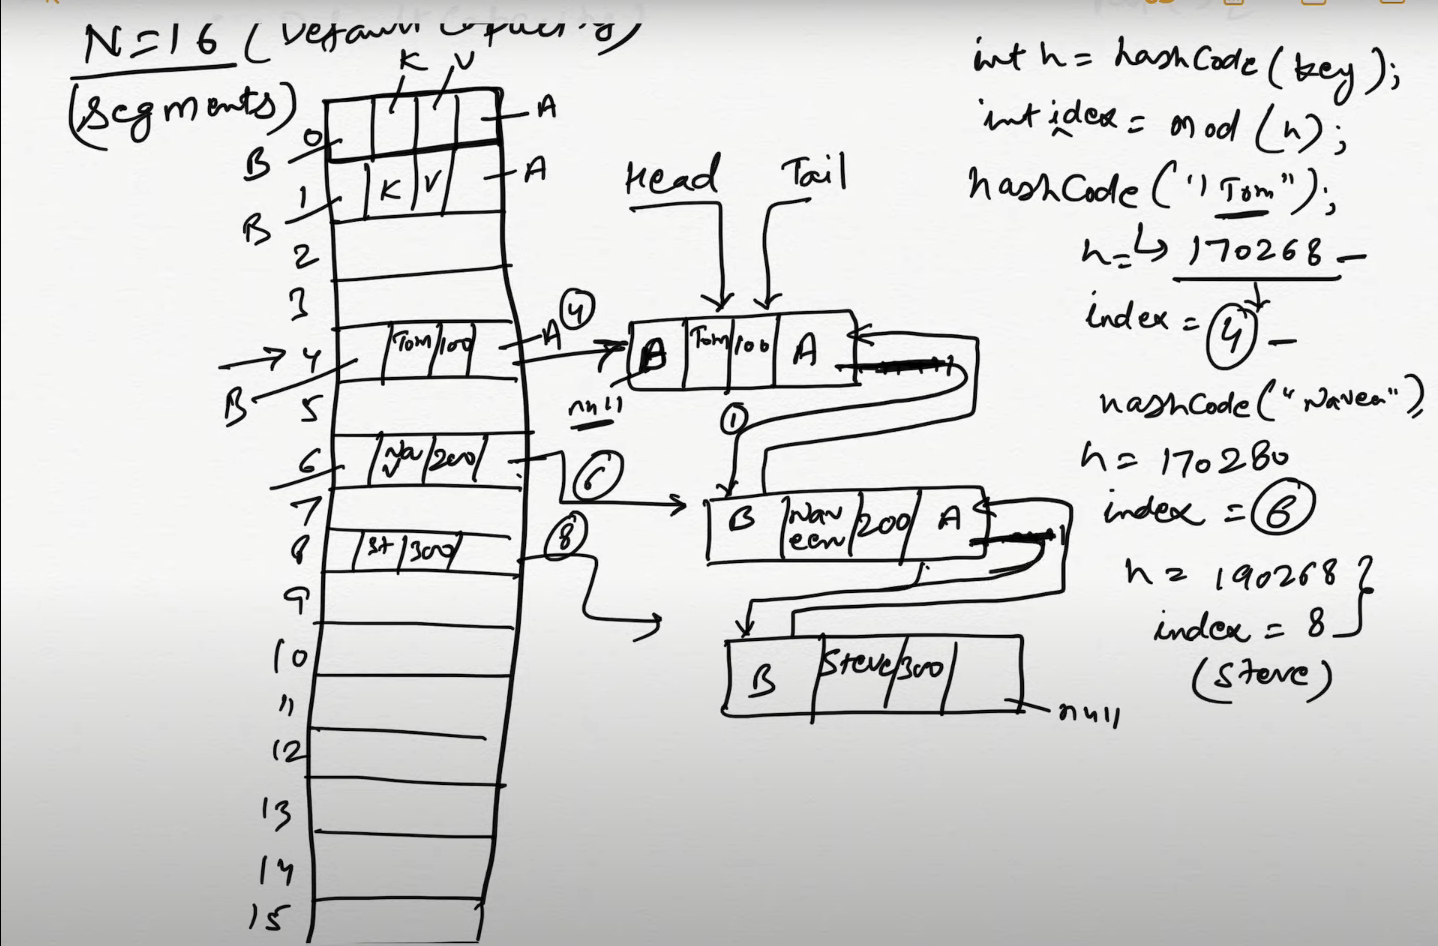 N=16 (Default Capacity)
(segments)
K V
0 A
B
1 K V A
B
2
3
4 Tom 100 A
B
5
6 200
7
8 St 300
9
10
11
12
13
14
15
Head Tail
4
Tom 100 A
null
1
6
B Naveen 200 A
8
B Steve 300
null
int h = hashCode(key);
int idex = mod (h);
hashCode ("Tom");
h= 170268
index = 4
hashCode("Naveen")
h = 170280
index = 6
h = 190268
index = 8
(Steve)